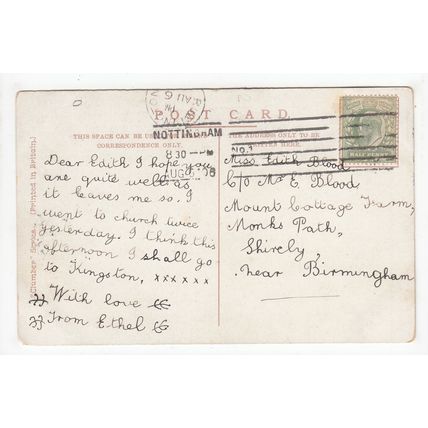 POST CARD.
THIS SPACE CAN BE USED
CORRESPONDENCE ONLY.
THE ADDRESS ONLY TO BE
WRITTEN HERE.
NOTTINGHAM
8 30
AUG
AU 6
No.1
HALF PENNY
"Clumber" Series. (Printed in Britain.)
Dear Edith I hope you
are quite well as
it leaves me so. I
went to church twice
yesterday. I think this
afternoon I shall go
to Kingston, xxxxxx
With love
From Ethel
Miss Edith Blood
C/o Mr E Blood
Mount Cottage Farm,
Monks Path,
Shirely,
near Birmingham